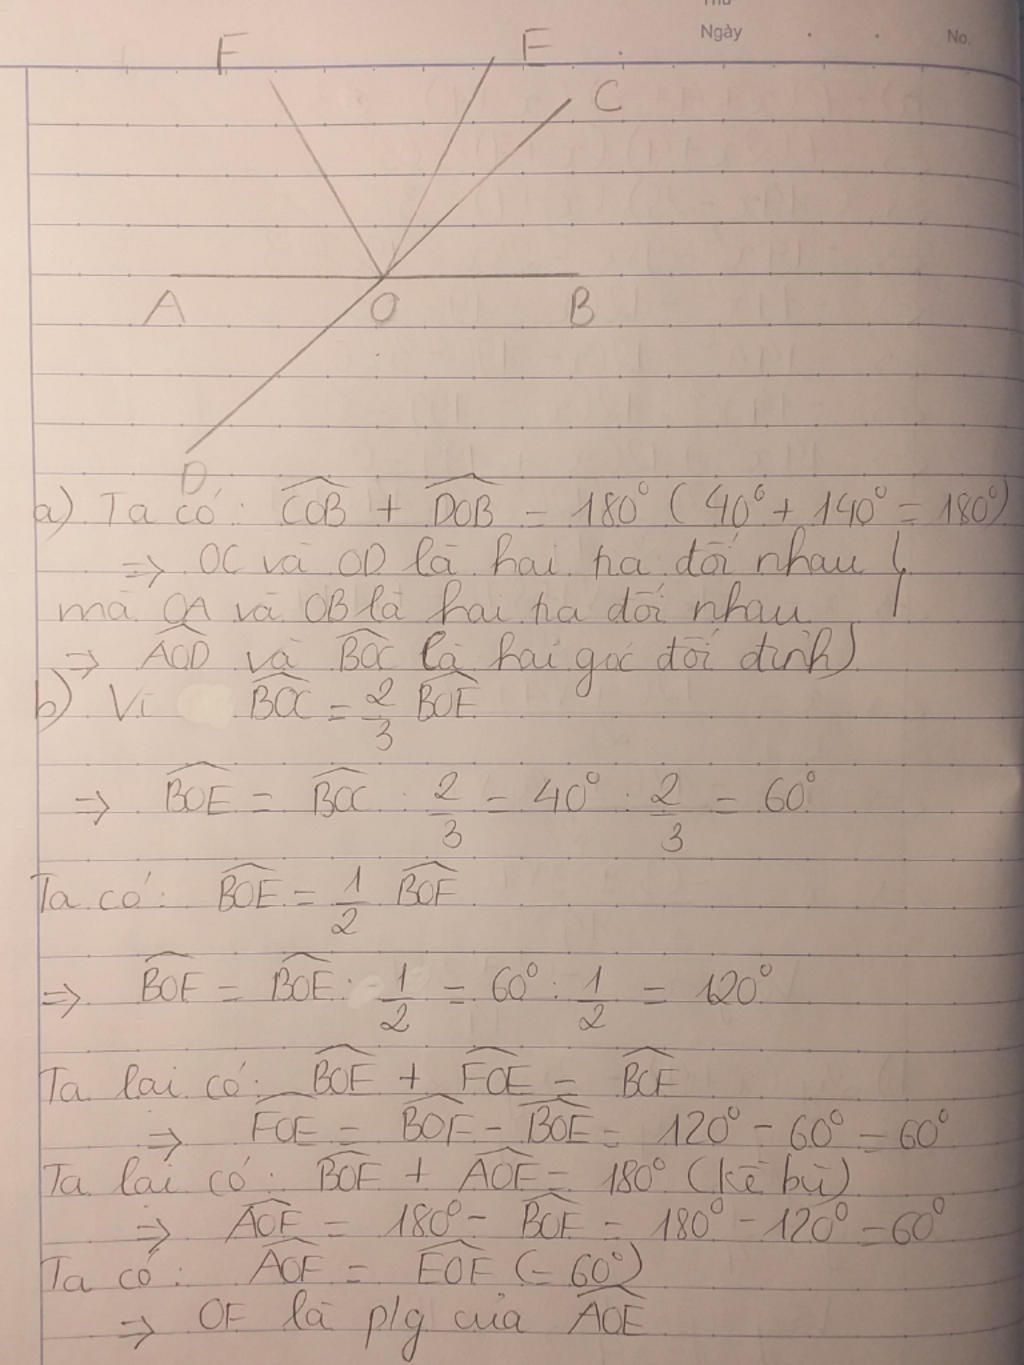 Thứ
Ngày
No.
F E
C
A O B
D
a) Ta có: COB + DOB = 180° (40° + 140° = 180°)
=> OC và OD là hai tia đối nhau
mà OA và OB là hai tia đối nhau
=> AOD và BOC là hai góc đối đỉnh)
b) Vì BOC = 2/3 BOE
=> BOE = BOC : 2/3 = 40° : 2/3 = 60°
Ta có: BOE = 1/2 BOF
=> BOF = BOE : 1/2 = 60° : 1/2 = 120°
Ta lại có: BOE + FOE = BOF
=> FOE = BOF - BOE = 120° - 60° = 60°
Ta lại có: BOF + AOF = 180° (kề bù)
=> AOF = 180° - BOF = 180° - 120° = 60°
Ta có: AOF = EOF (= 60°)
=> OF là p/g của AOE